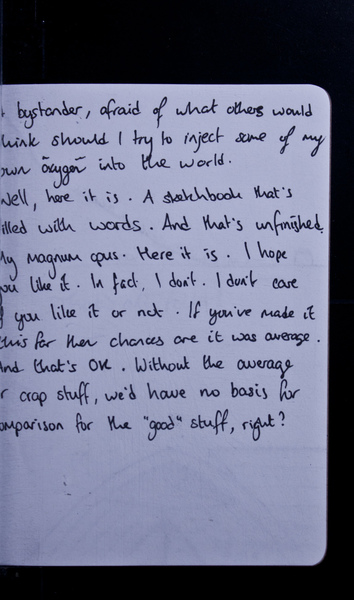 bystander, afraid of what others would
think should I try to inject some of my
own "oxygen" into the world.
Well, here it is. A sketchbook that's
filled with words. And that's unfinished.
My magnum opus. Here it is. I hope
you like it. In fact, I don't. I don't care
if you like it or not. If you've made it
this far then chances are it was average.
And that's OK. Without the average
or crap stuff, we'd have no basis for
comparison for the "good" stuff, right?